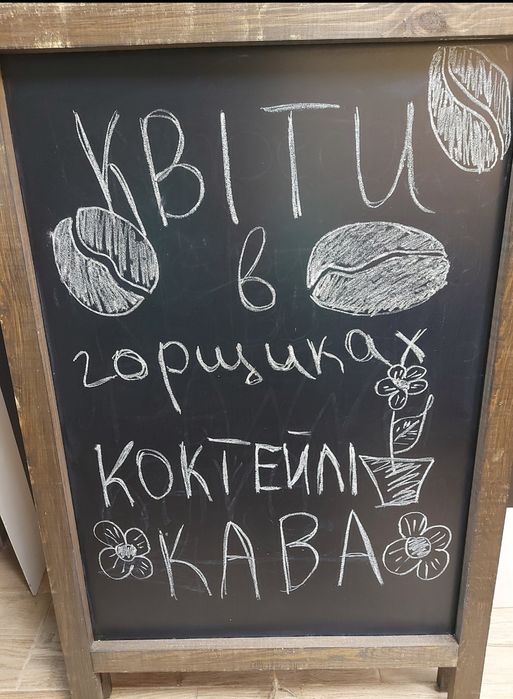 КВІТИ
в
горщиках
КОКТЕЙЛІ
КАВА